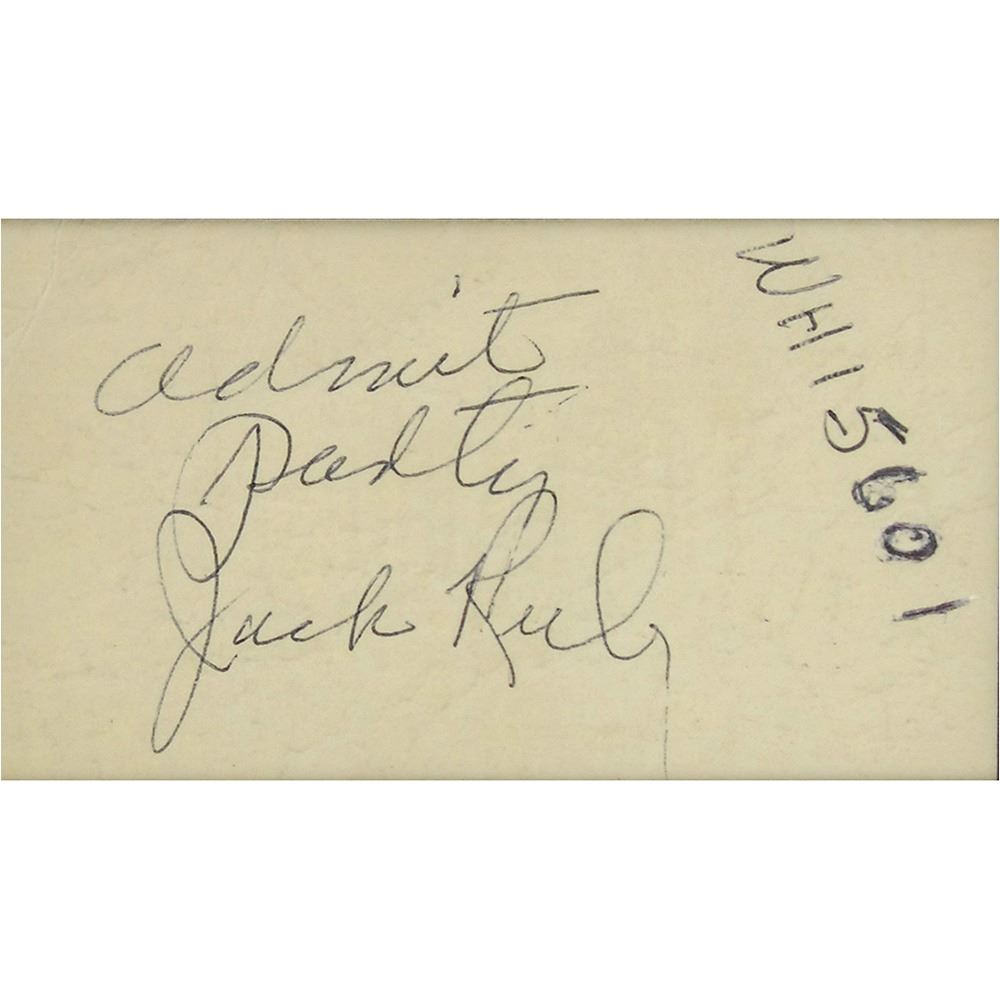 admit
party
Jack Ruby
WH1 5601